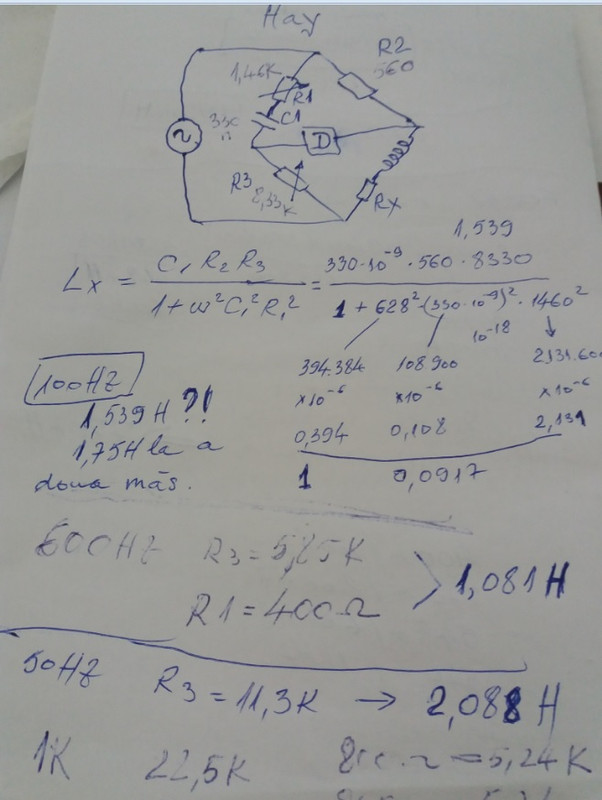 Hay
R2
560
1,46K
R1
C1
330
n
D
R3
8,33K
RX
1,539
Lx = C1 R2 R3 / 1+ω²C1²R1² = 330·10⁻⁹ · 560 · 8330 / 1 + 628² · (330·10⁻⁹)² · 1460²
10⁻¹⁸
394.384 108900 2131.600
×10⁻⁶ ×10⁻⁶ ×10⁻⁶
0,394 0,108 2,131
1 0,0917
100HZ
1,539H ?!
1,75H la a
doua măs.
600HZ R3 = 5,85K
R1 = 400Ω
1,081H
50HZ R3 = 11,3K → 2,088 H
1K 22,5K = 5,24K